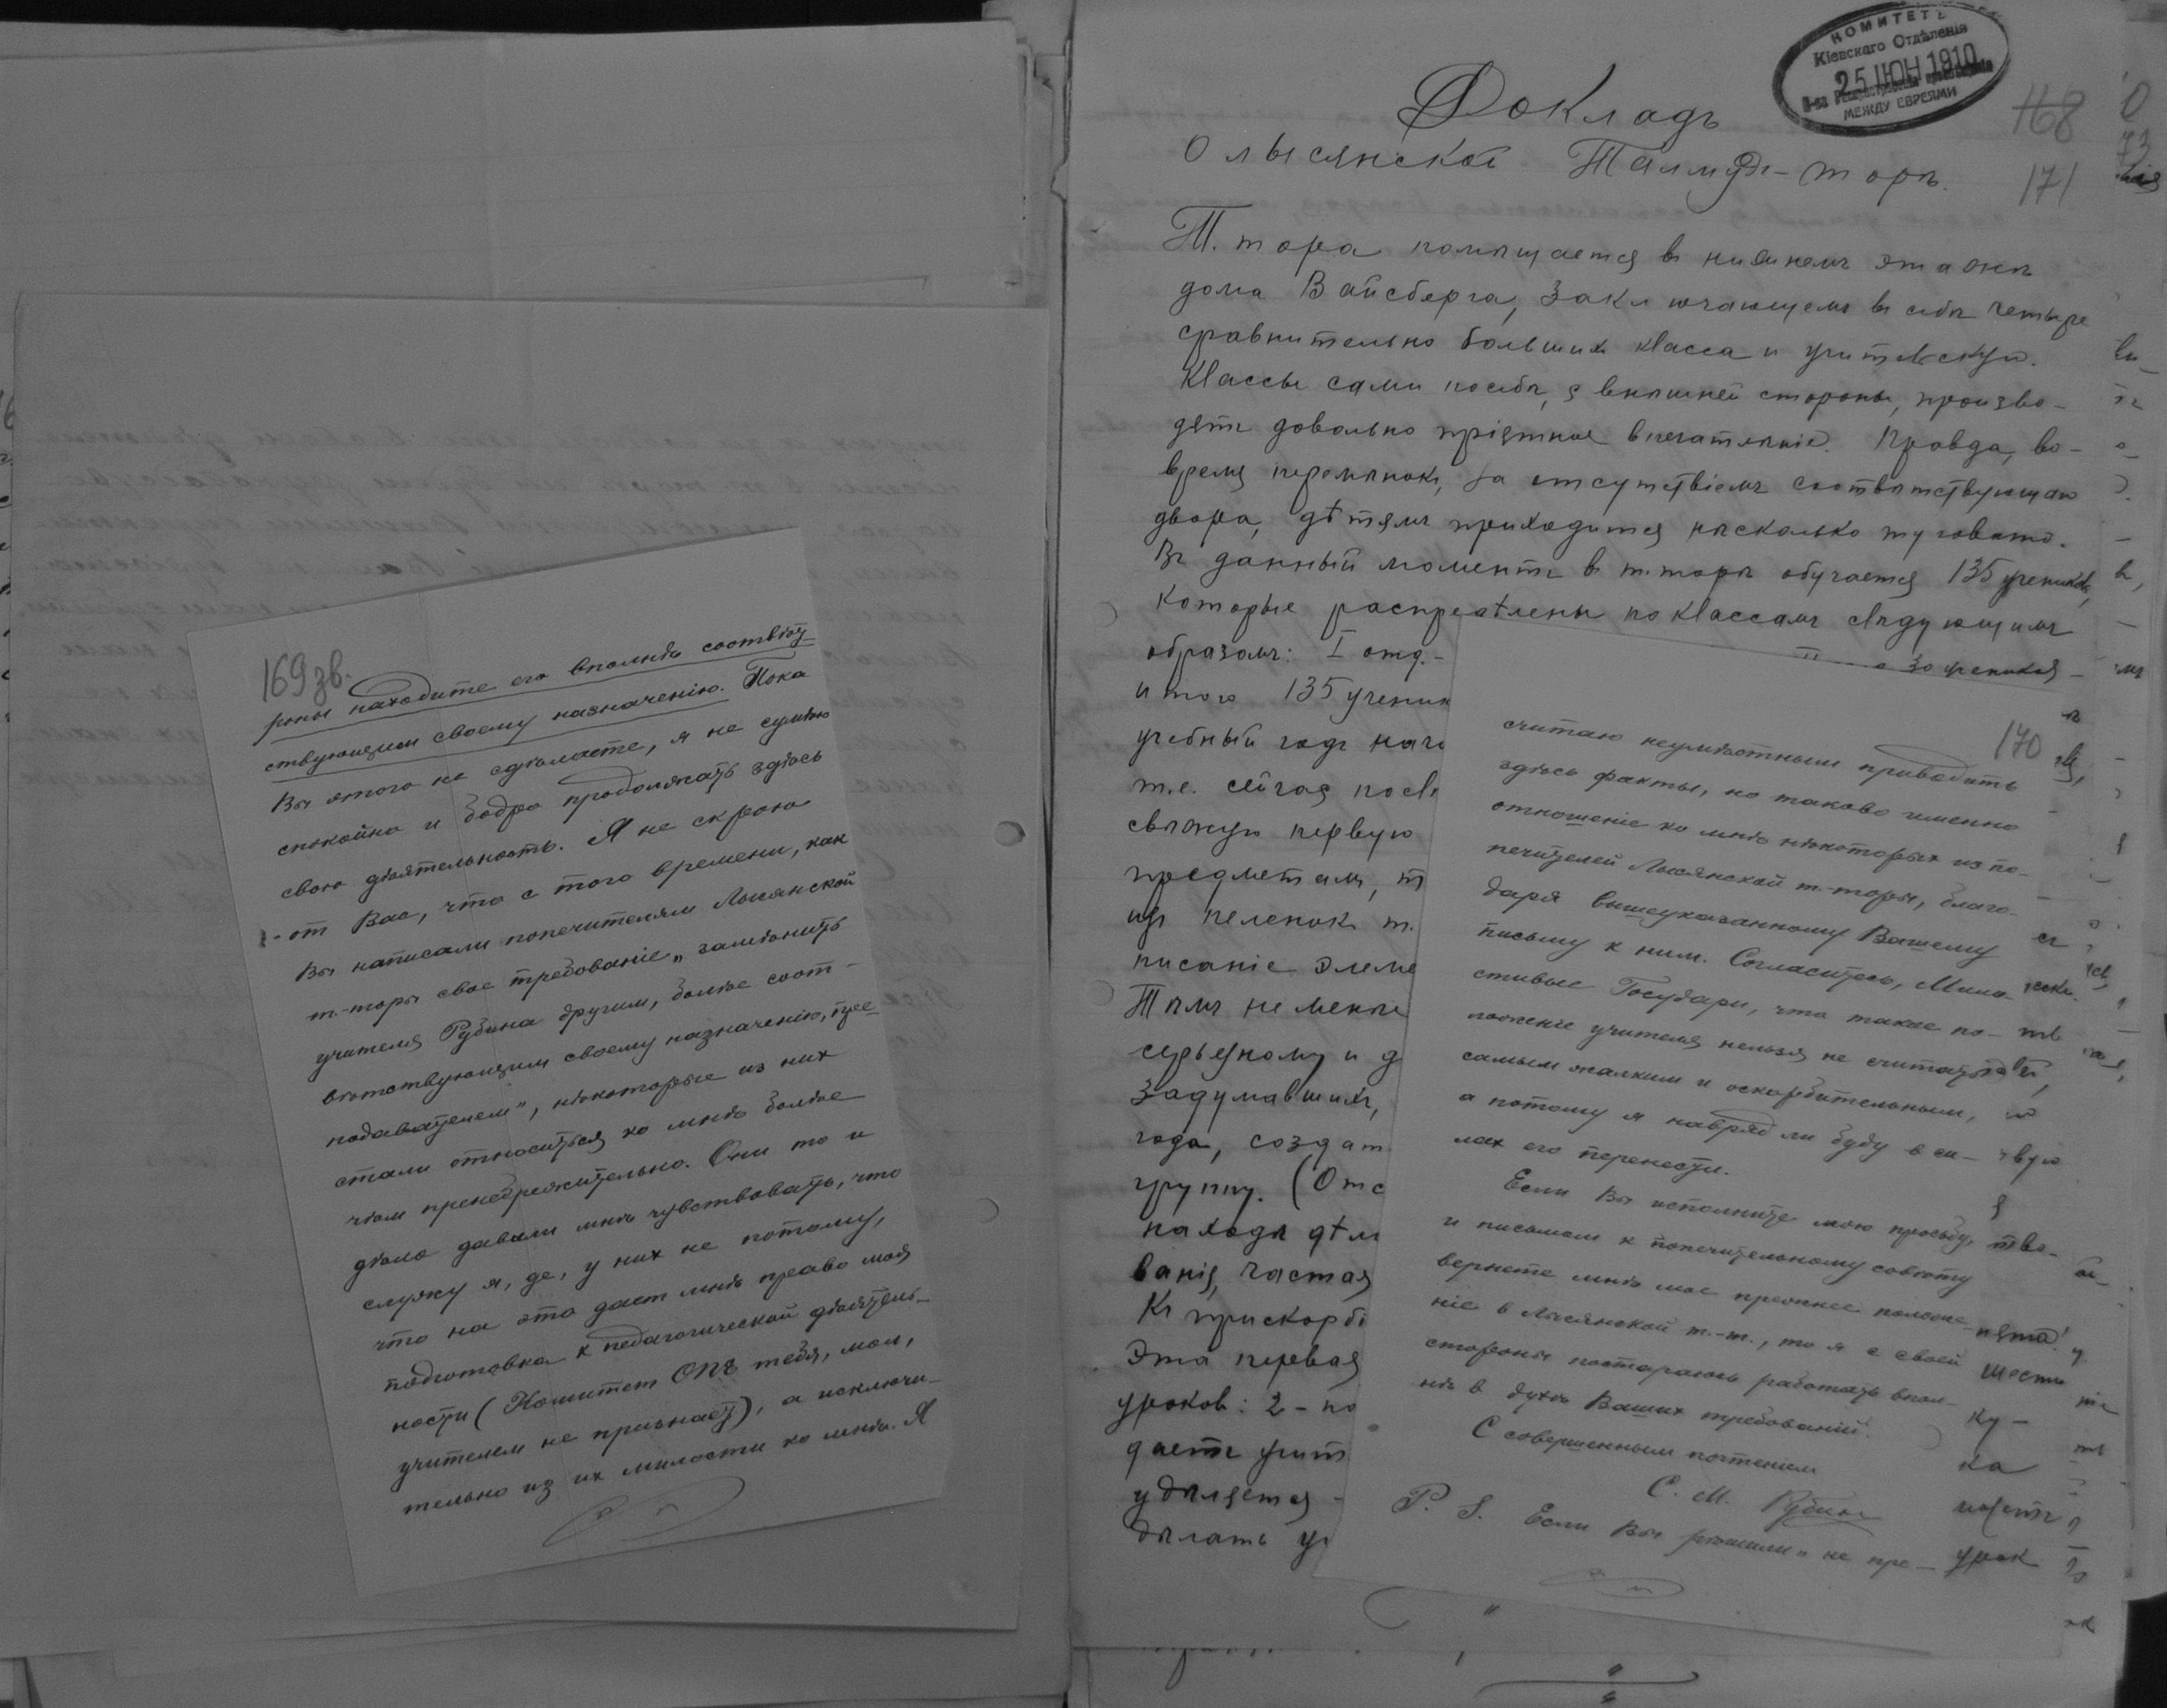 169 зв.
роны находите его вполнѣ соотвѣт-
ствующим своему назначенію. Пока
Вы этого не сдѣлаете, я не сумѣю
спокойно и бодро продолжать здѣсь
свою дѣятельность. Я не скрою
от Вас, что с того времени, как
Вы написали попечителям Лысянской
т.-торы свое требованіе „замѣнить
учителя Рубина другим, болѣе соот-
вѣтствующим своему назначенію, пре-
подавателем", нѣкоторые из них
стали относиться ко мнѣ болѣе
чѣм пренебрежительно. Они то и
дѣло давали мнѣ чувствовать, что
служу я, де, у них не потому,
что на это дает мнѣ право моя
подготовка к педагогической дѣятель-
ности (Комитет ОПЕ тебя, мол,
учителем не признает), а исключи-
тельно из их милости ко мнѣ. Я
КОМИТЕТЪ
Кіевскаго Отдѣленія
25 ІЮН 1910
О-ва Распространенія просвѣщенія
МЕЖДУ ЕВРЕЯМИ
Докладъ
168
О Лысянской Талмудъ-торѣ.
171
Т. тора помѣщается въ нижнемъ этажѣ
дома Вайсберга, заключающемъ въ себѣ четыре
сравнительно большихъ класса и учительскую.
Классы сами по себѣ, съ внѣшней стороны, произво-
дятъ довольно пріятное впечатлѣніе. Правда, во-
время перемѣнокъ, за отсутствіемъ соотвѣтствующаго
двора, дѣтямъ приходится нѣсколько туговато.
Въ данный моментъ въ т. торѣ обучается 135 учениковъ,
которые распредѣлены по классамъ слѣдующимъ
образомъ: I отд.-
итого 135 ученик
учебный годъ нача
т.е. сейчасъ посл
свѣжую первую
предметамъ, т
изъ пеленокъ т.
писаніе элеме
Тѣмъ не менѣе
серьезному и д
задумавшихъ,
года, создат
группу. (Отс
находъ дѣл
ванія, частая
Къ прискорбі
Эта первая
уроковъ: 2 - по
даетъ учит
удѣляется
дѣлать ур
170
считаю неумѣстным приводить
здѣсь факты, но таково именно
отношеніе ко мнѣ нѣкоторых из по-
печителей Лысянской т.-торы, благо-
даря вышеуказанному Вашему
письму к ним. Согласитесь, Мило-
стивые Государи, что такое по-
ложеніе учителя нельзя не считать
самым жалким и оскорбительным,
а потому я навряд ли буду в си-
лах его перенести.
Если Вы исполните мою просьбу,
и письмом к попечительному совѣту
вернете мнѣ мое прежнее положе-
ніе в Лысянской т.-т., то я с своей
стороны постараюсь работать впол-
нѣ в духѣ Ваших требованій.
С совершенным почтеніем
С. М. Рубин
P. S. Если Вы рѣшили „не пре-